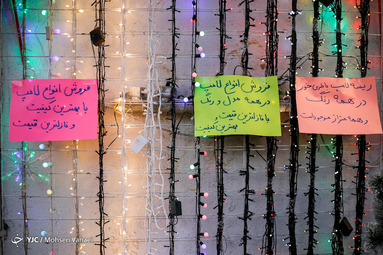 فروش انواع لامپ
با بهترین کیفیت
و نازلترین قیمت
فروش انواع لامپ
در همه مدل و رنگ
با نازلترین قیمت
و بهترین کیفیت
ریسه لامپ
در همه رنگ
و همه متراژ موجود است
YJC / Mohsen